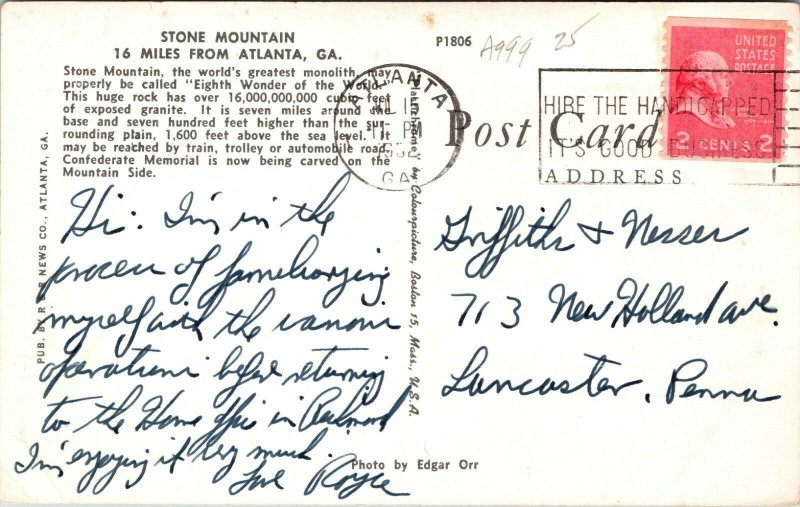 STONE MOUNTAIN
16 MILES FROM ATLANTA, GA.
Stone Mountain, the world's greatest monolith, may
properly be called "Eighth Wonder of the World."
This huge rock has over 16,000,000,000 cubic feet
of exposed granite. It is seven miles around the
base and seven hundred feet higher than the sur-
rounding plain, 1,600 feet above the sea level. It
may be reached by train, trolley or automobile road.
Confederate Memorial is now being carved on the
Mountain Side.
P1806
A999 25
ATLANTA
PM
GA.
Post Card
HIRE THE HANDICAPPED
IT'S GOOD BUSINESS
ADDRESS
UNITED
STATES
POSTAGE
2 CENTS 2
PUB. BY R & R NEWS CO., ATLANTA, GA.
by Colourpicture, Boston 15, Mass., U.S.A.
Hi: I'm in the
process of familiarizing
myself with the various
operations before returning
to the Home Office in
I'm enjoying it very much.
Love Royce
Griffiths & Nesser
713 New Holland ave.
Lancaster, Penna
Photo by Edgar Orr